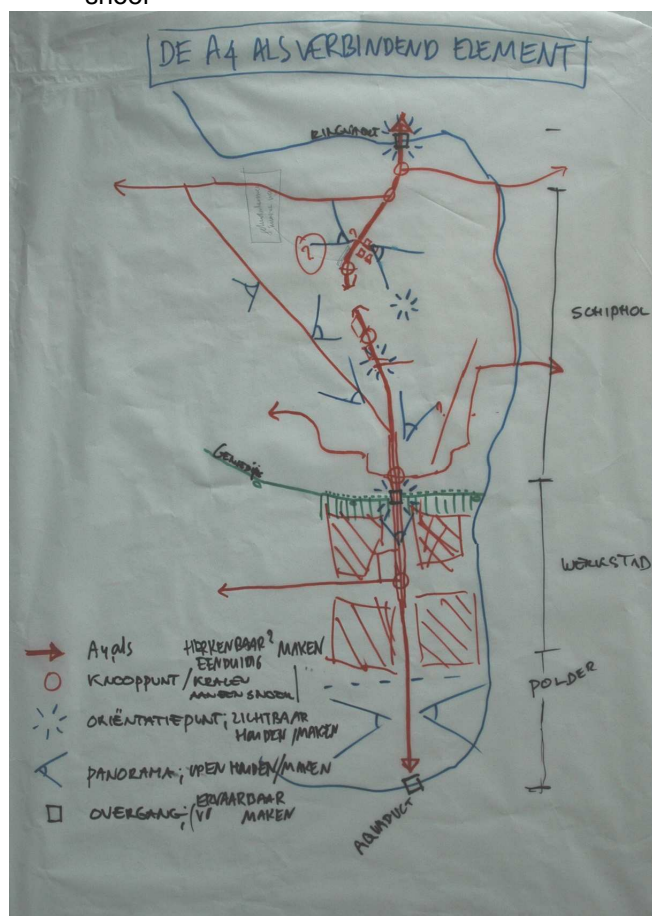 snoer
DE A4 ALS VERBINDEND ELEMENT
RINGVAART
?
?
SCHIPHOL
?
GENIEDIJK
WERKSTAD
A4 als HERKENBAAR? MAKEN
EENDUIDIG
KNOOPPUNT / KRALEN
AAN EEN SNOER
POLDER
ORIËNTATIEPUNT; ZICHTBAAR
HOUDEN / MAKEN
PANORAMA; OPEN HOUDEN/MAKEN
OVERGANG; ERVAARBAAR
MAKEN
AQUADUCT